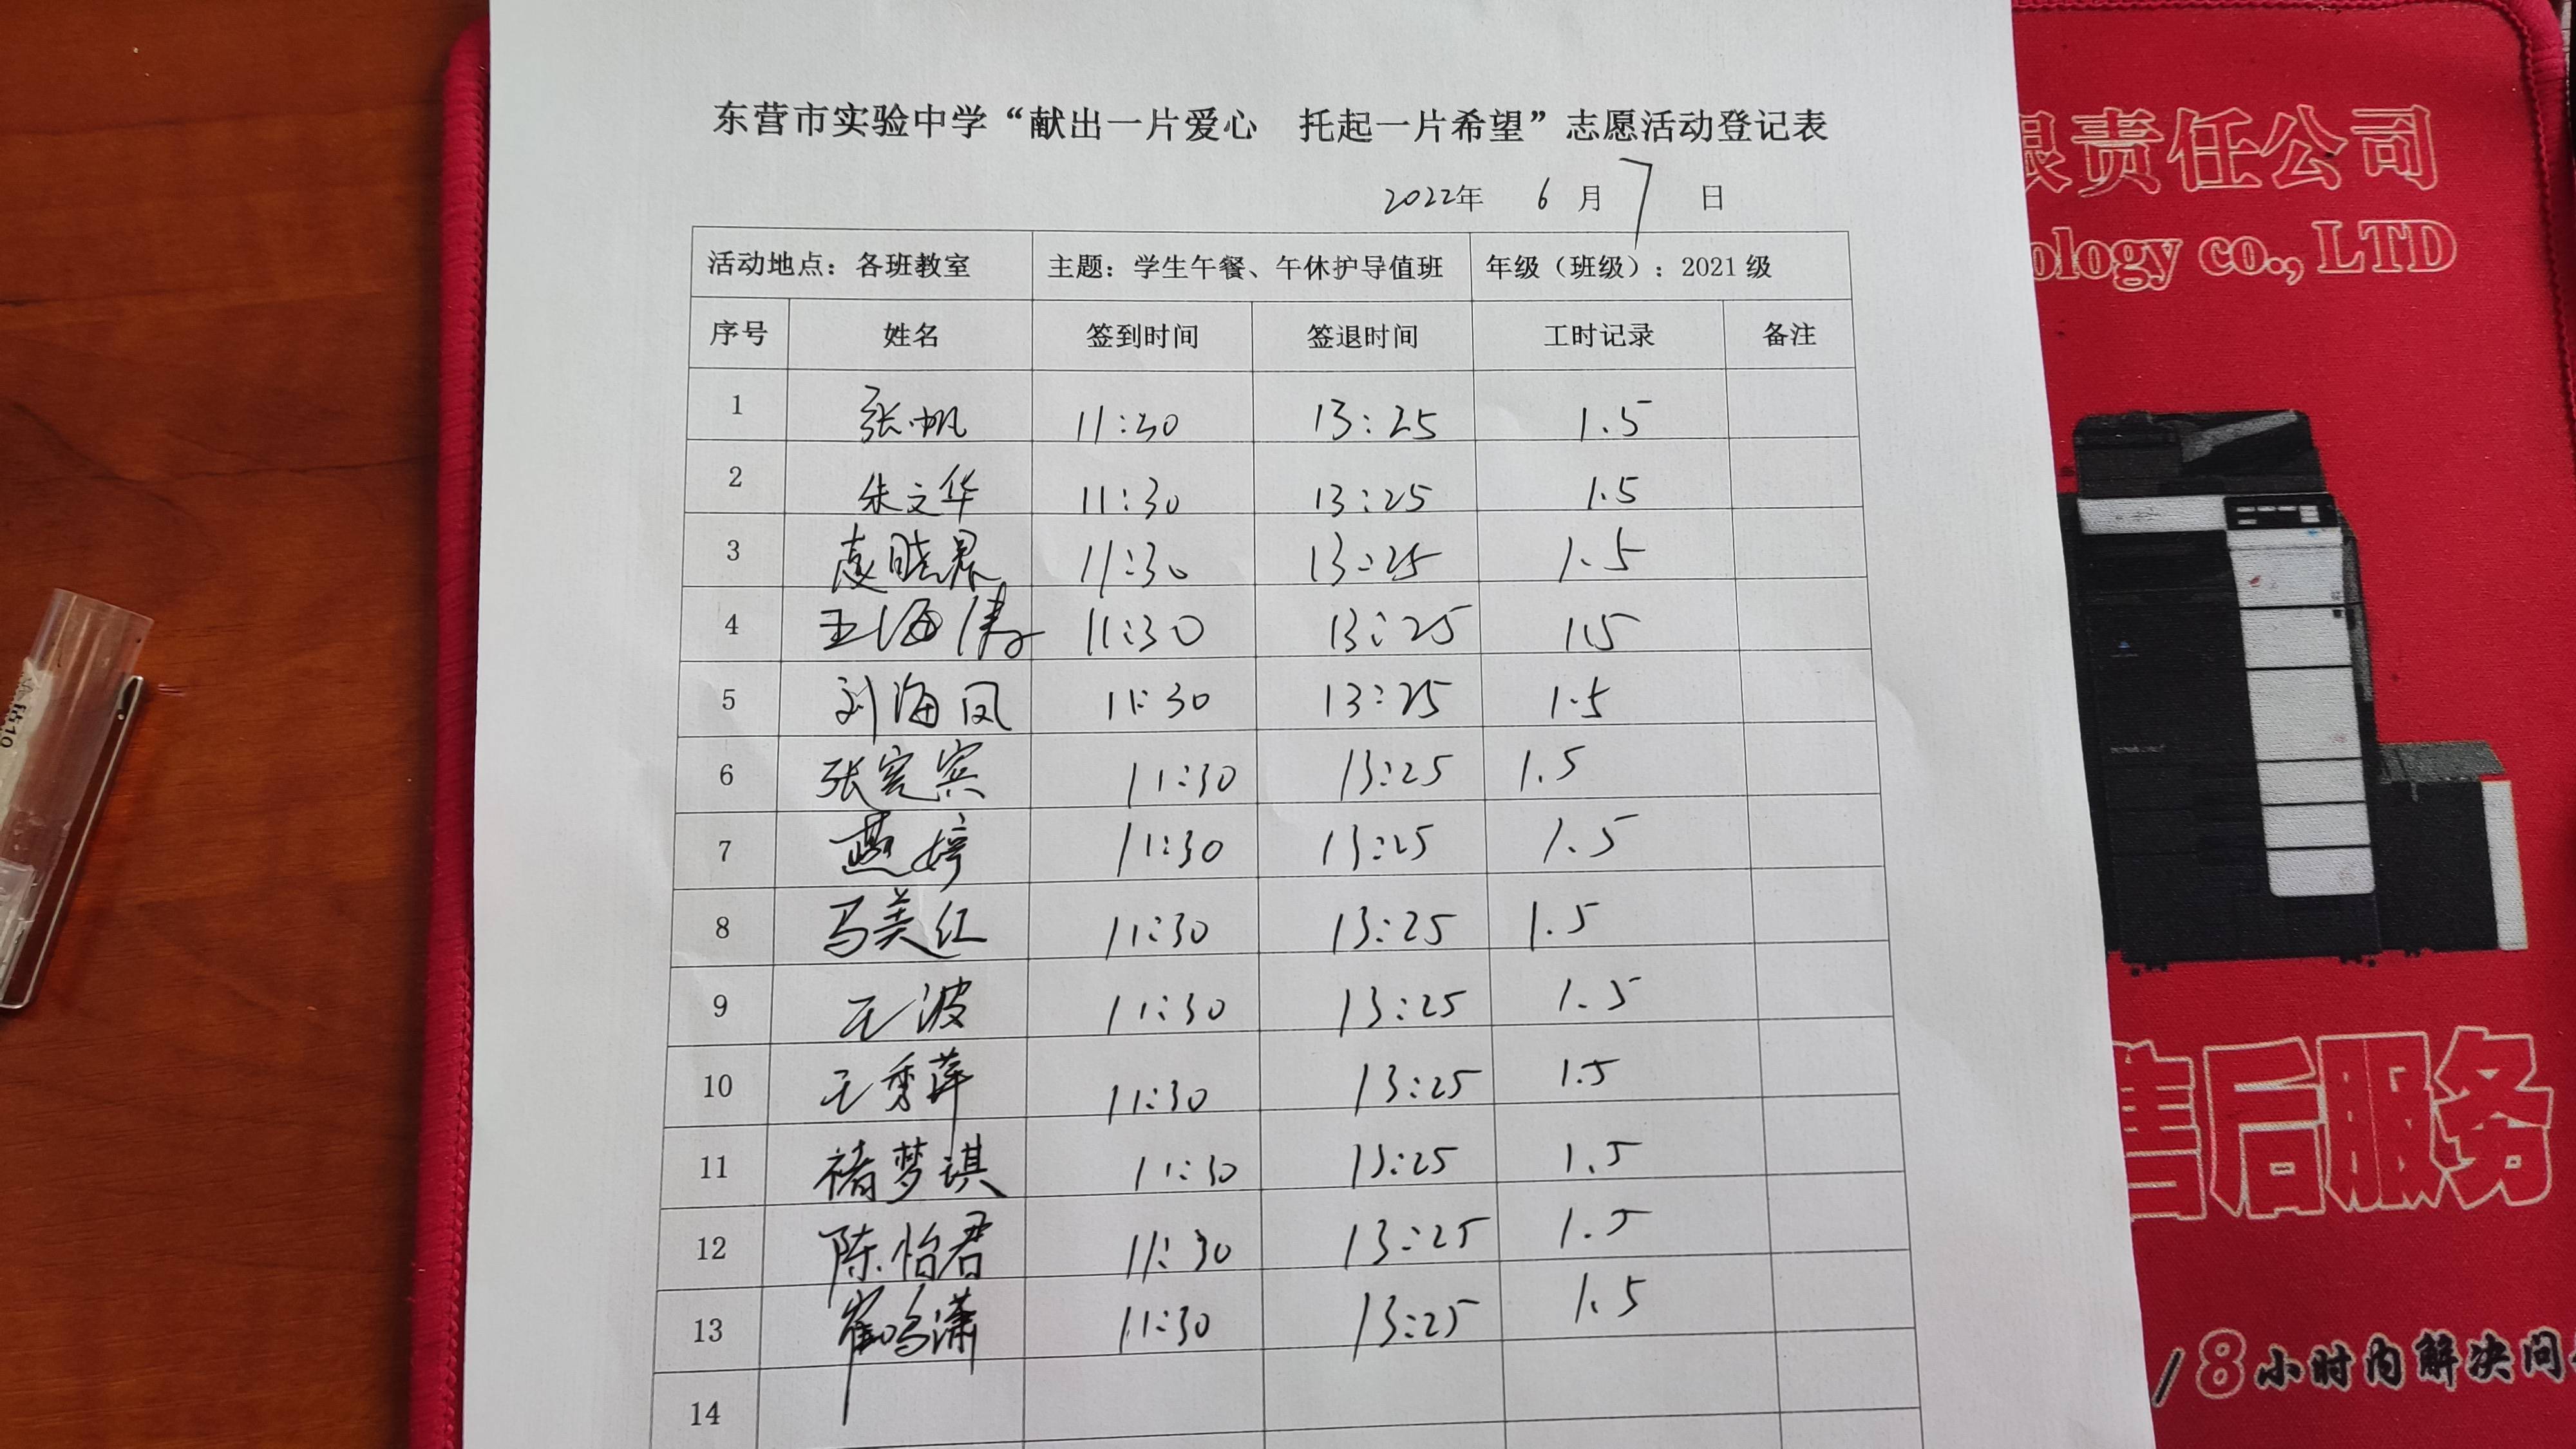 东营市实验中学“献出一片爱心 托起一片希望”志愿活动登记表
2022年 6 月 7 日
活动地点：各班教室 主题：学生午餐、午休护导值班 年级（班级）：2021级
序号 姓名 签到时间 签退时间 工时记录 备注
1 张帆 11:30 13:25 1.5
2 朱文华 11:30 13:25 1.5
3 11:30 13:25 1.5
4 王海涛 11:30 13:25 1.5
5 刘海凤 11:30 13:25 1.5
6 11:30 13:25 1.5
7 燕婷 11:30 13:25 1.5
8 马美红 11:30 13:25 1.5
9 王波 11:30 13:25 1.5
10 王秀萍 11:30 13:25 1.5
11 褚梦琪 11:30 13:25 1.5
12 陈怡君 11:30 13:25 1.5
13 崔鸣潇 11:30 13:25 1.5
14
限责任公司
ology co., LTD
售后服务
/8小时内解决问